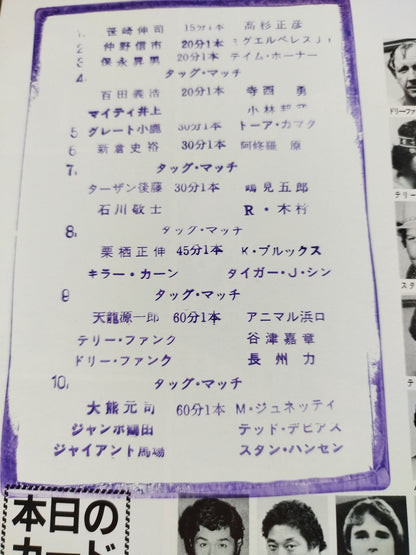 1. 笹崎伸司 15分1本 高杉正彦
2 仲野信市 20分1本 ミグエルペレスJr
3 保永昇男 20分1本 テイム・ホーナー
4. タッグ・マッチ
百田義浩 20分1本 寺西 勇
マイティ井上 小林
5 グレート小鹿 30分1本 トーア・カマタ
6 新倉史裕 30分1本 阿修羅 原
7. タッグ・マッチ
ターザン後藤 30分1本 鶴見五郎
石川敬士 R・木村
8. タッグ・マッチ
栗栖正伸 45分1本 K・ブルックス
キラー・カーン タイガー・J・シン
9 タッグ・マッチ
天龍源一郎 60分1本 アニマル浜口
テリー・ファンク 谷津嘉章
ドリー・ファンク 長州 力
10. タッグ・マッチ
大熊元司 60分1本 M・ジュネッティ
ジャンボ鶴田 テッド・デビアス
ジャイアント馬場 スタン・ハンセン
本日の
カード
ドリー・ファ
テリー
スタ